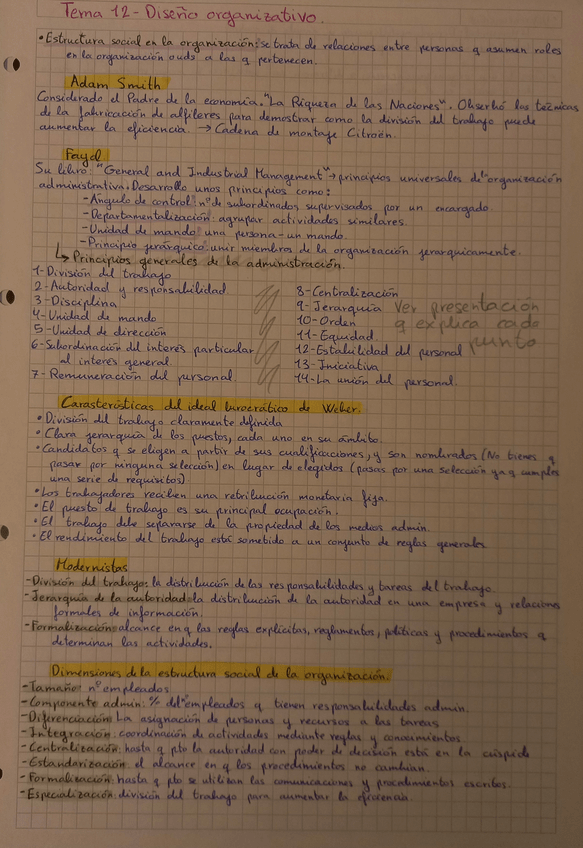 Tema 12 - Diseño organizativo.
• Estructura social en la organización: se trata de relaciones entre personas q asumen roles
en la organización o uds a las q pertenecen.
Adam Smith
Considerado el Padre de la economía. "La Riqueza de las Naciones". Observó las técnicas
de la fabricación de alfileres para demostrar como la división del trabajo puede
aumentar la eficiencia. → Cadena de montaje Citroën.
Fayol
Su libro: "General and Industrial Management" → principios universales de organización
administrativa. Desarrolló unos principios como:
- Ángulo de control: nº de subordinados supervisados por un encargado.
- Departamentalización: agrupar actividades similares.
- Unidad de mando: una persona - un mando.
- Principio jerárquico: unir miembros de la organización jerarquicamente.
↳ Principios generales de la administración.
1- División del trabajo
2- Autoridad y responsabilidad
3- Disciplina
4- Unidad de mando
5- Unidad de dirección
6- Subordinación del interés particular
al interés general
7- Remuneración del personal
8- Centralización
9- Jerarquía
10- Orden
11- Equidad
12- Estabilidad del personal
13- Iniciativa
14- La unión del personal.
Ver presentación
q explica cada
punto
Carasterísticas del ideal burocrático de Weber.
• División del trabajo claramente definida
• Clara jerarquía de los puestos, cada uno en su ámbito.
• Candidatos q se eligen a partir de sus cualificaciones, y son nombrados (No tienes q
pasar por ninguna selección) en lugar de elegidos (pasas por una selección ya q cumples
una serie de requisitos)
• Los trabajadores reciben una retribución monetaria fija.
• El puesto de trabajo es su principal ocupación.
• El trabajo debe separarse de la propiedad de los medios admin.
• El rendimiento del trabajo está sometido a un conjunto de reglas generales
Modernistas
- División del trabajo: la distribución de las responsabilidades y tareas del trabajo
- Jerarquía de la autoridad: la distribución de la autoridad en una empresa y relaciones
formales de información.
- Formalización: alcance en q las reglas explícitas, reglamentos, políticas y procedimientos q
determinan las actividades.
Dimensiones de la estructura social de la organización.
- Tamaño: nº empleados
- Componente admin: % del nº empleados q tienen responsabilidades admin.
- Diferenciación: La asignación de personas y recursos a las tareas
- Integración: coordinación de actividades mediante reglas y conocimientos.
- Centralización: hasta q pto la autoridad con poder de decisión está en la cúspide
- Estandarización: el alcance en q los procedimientos no cambian.
- Formalización: hasta q pto se utilizan las comunicaciones y procedimientos escritos.
- Especialización: división del trabajo para aumentar la eficiencia.